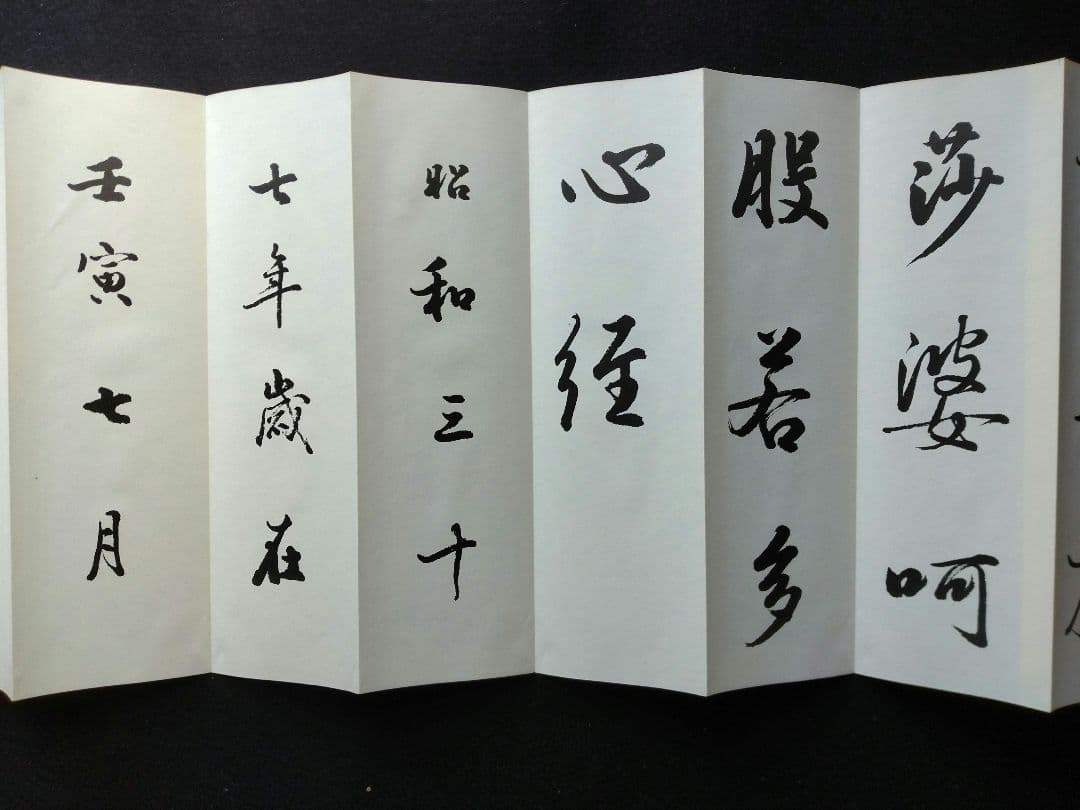 莎婆呵
般若多
心経
昭和三十
七年歳在
壬寅七月